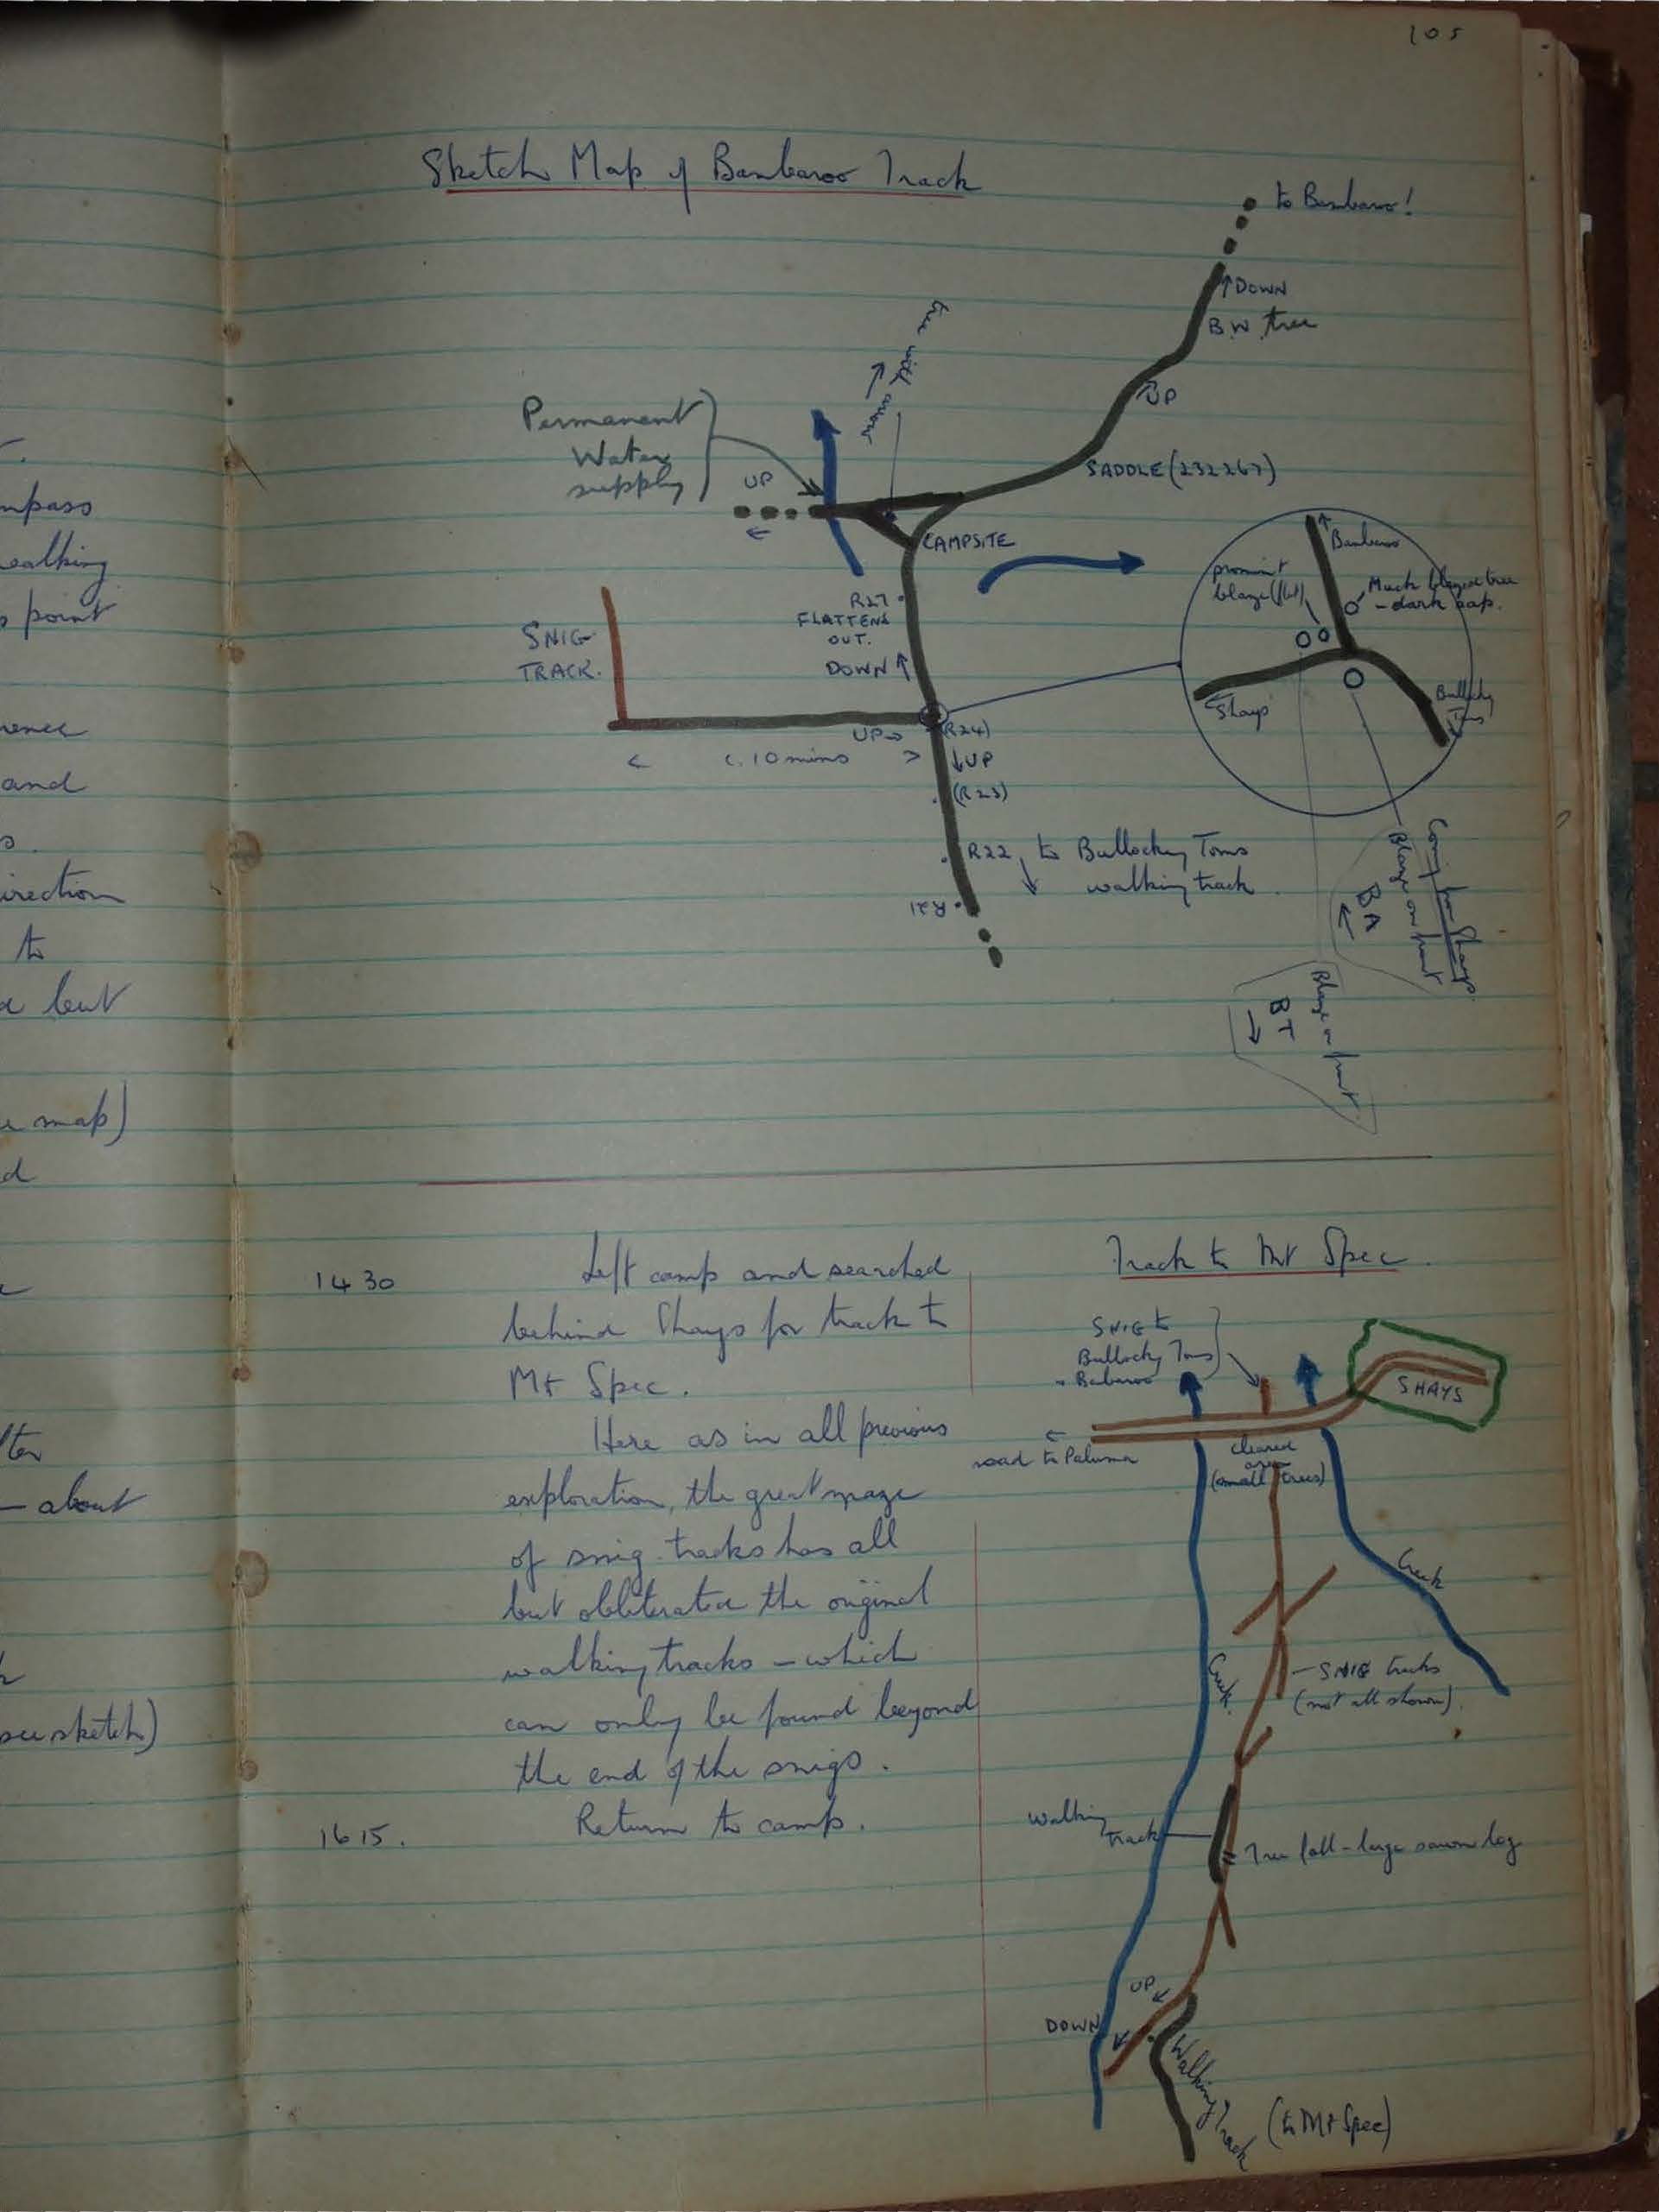 105
Sketch Map of Bambaroo Track
to Bambaroo!
↑ DOWN
B.W. tree
UP
tree with arrow →
Permanent
Water
supply
UP
←
SADDLE (232267)
CAMPSITE
R27
FLATTENS
OUT.
DOWN ↑
SNIG
TRACK.
UP→
(R24)
< c. 10 mins >
↓UP
(R23)
R22
to Bullocky Toms
walking track
R21
Bambaroo
prominent
blaze
Much blazed tree
- dark sap.
Shays
Bullocky
Toms
Coming from Shays
Blaze on front
BA
←
Blaze on front
BT
→
mpass
walking
s point
and
irection
to
a but
map)
d
about
see sketch)
1430
Left camp and searched
behind Shays for track to
Mt Spec.
Here as in all previous
exploration, the great maze
of snig tracks has all
but obliterated the original
walking tracks – which
can only be found beyond
the end of the snigs.
1615.
Return to camp.
Track to Mt Spec.
SNIG to
Bullocky Toms
SHAYS
←
road to Paluma
cleared
area
(small trees)
Creek
Creek
– SNIG tracks
(not all shown).
Walking
Track
Tree fall – large sawn log
UP
DOWN
Walking Track
(to Mt Spec)